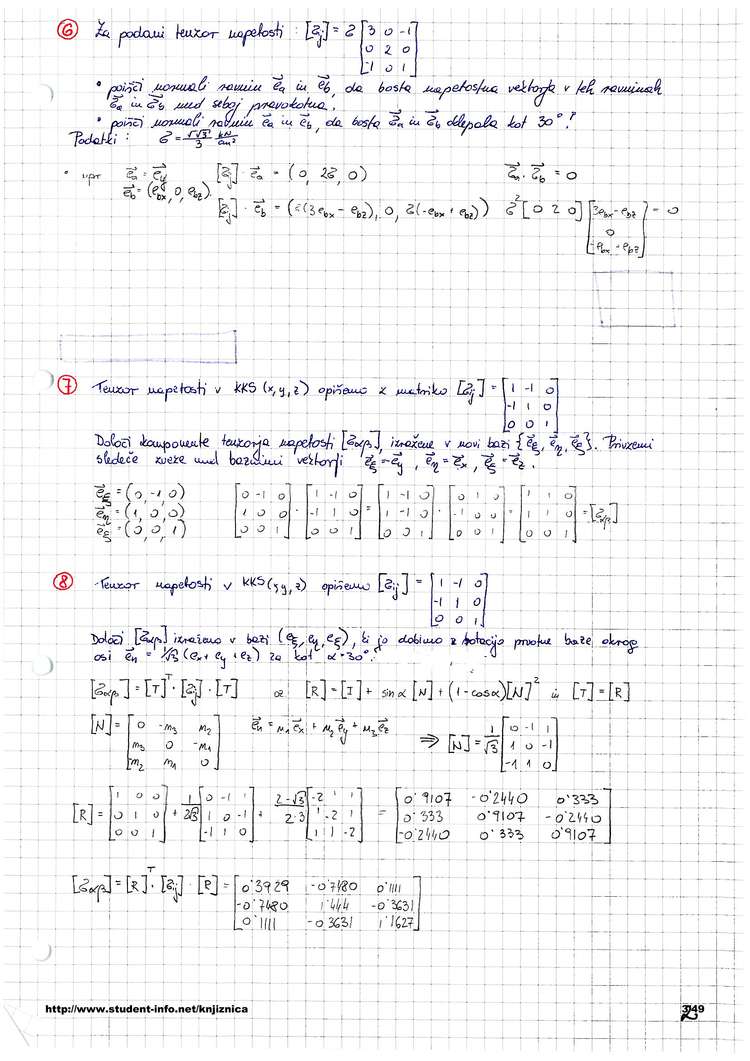 6 Za podani tenzor napetosti : [σij] = σ [3 0 -1
0 2 0
-1 0 1]
• poišči normali ravnin e⃗a in e⃗b, da bosta napetostna vektorja v teh ravninah
σ⃗a in σ⃗b med seboj pravokotna.
• poišči normali ravnin e⃗a in e⃗b, da bosta σ⃗a in σ⃗b oklepala kot 30°?
Podatki : σ = √√3/3 kN/cm²
• npr e⃗a = e⃗y [σij] · e⃗a = (0, 2σ, 0) σ⃗a · σ⃗b = 0
e⃗b = (ebx, 0, ebz)
[σij] · e⃗b = (σ(3ebx - ebz), 0, σ(-ebx + ebz)) σ² [0 2 0] [3ebx - ebz
0
-ebx + ebz] = 0
7 Tenzor napetosti v KKS (x,y,z) opišemo z matriko [σij] = [1 -1 0
-1 1 0
0 0 1]
Določi komponente tenzorja napetosti [σαβ], izražene v novi bazi {e⃗ξ, e⃗η, e⃗ζ}. Privzemi
sledeče zveze med baznimi vektorji e⃗ξ = -e⃗y, e⃗η = e⃗x, e⃗ζ = e⃗z.
e⃗ξ = (0, -1, 0) [0 -1 0] · [1 -1 0] = [1 -1 0] · [0 1 0] = [1 1 0] = [σαβ]
e⃗η = (1, 0, 0) [1 0 0] [-1 1 0] [1 -1 0] [-1 0 0] [1 1 0]
e⃗ζ = (0, 0, 1) [0 0 1] [0 0 1] [0 0 1] [0 0 1] [0 0 1]
8 Tenzor napetosti v KKS (x,y,z) opišemo [σij] = [1 -1 0
-1 1 0
0 0 1]
Določi [σαβ] izraženo v bazi (eξ, eη, eζ), ki jo dobimo z rotacijo prvotne baze okrog
osi e⃗n = 1/√3 (ex + ey + ez) za kot α = 30°.
[σαβ] = [T]ᵀ · [σij] · [T] [R] = [I] + sinα [N] + (1-cosα)[N]² in [T] = [R]
[N] = [0 -n3 n2 e⃗n = n1 e⃗x + n2 e⃗y + n3 e⃗z ⇒ [N] = 1/√3 [0 -1 1
n3 0 -n1 1 0 -1
-n2 n1 0] -1 1 0]
[R] = [1 0 0 + 1/2√3 [0 -1 1 + 2-√3/2·3 [-2 1 1 = [0'9107 -0'2440 0'333
0 1 0 1 0 -1 1 -2 1 0'333 0'9107 -0'2440
0 0 1] -1 1 0] 1 1 -2] -0'2440 0'333 0'9107]
[σαβ] = [R]ᵀ · [σij] · [R] = [0'3929 -0'7480 0'1111
-0'7480 1'444 -0'3631
0'1111 -0'3631 1'1627]
http://www.student-info.net/knjiznica